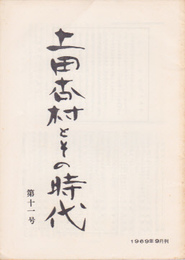 土田杏村とその時代
第十一号
1969年9月刊